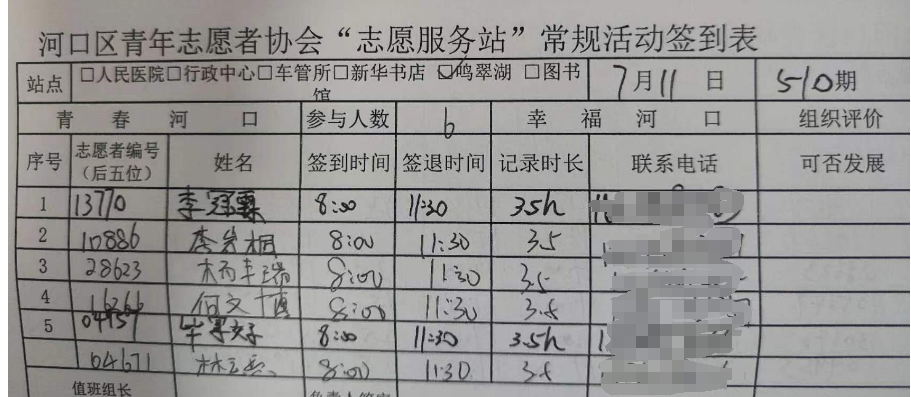 河口区青年志愿者协会“志愿服务站”常规活动签到表
站点 □人民医院□行政中心□车管所□新华书店 ☑鸣翠湖 □图书馆 7月11日 510期
青春河口 参与人数 6 幸福河口 组织评价
序号 志愿者编号（后五位） 姓名 签到时间 签退时间 记录时长 联系电话 可否发展
1 13770 李冠霖 8:00 11:30 3.5h
2 10886 李 桐 8:00 11:30 3.5
3 28623 瑞 8:00 11:30 3.5
4 16366 何文博 8:00 11:30 3.5
5 04157 8:00 11:30 3.5h
04671 林 8:00 11:30 3.5
值班组长